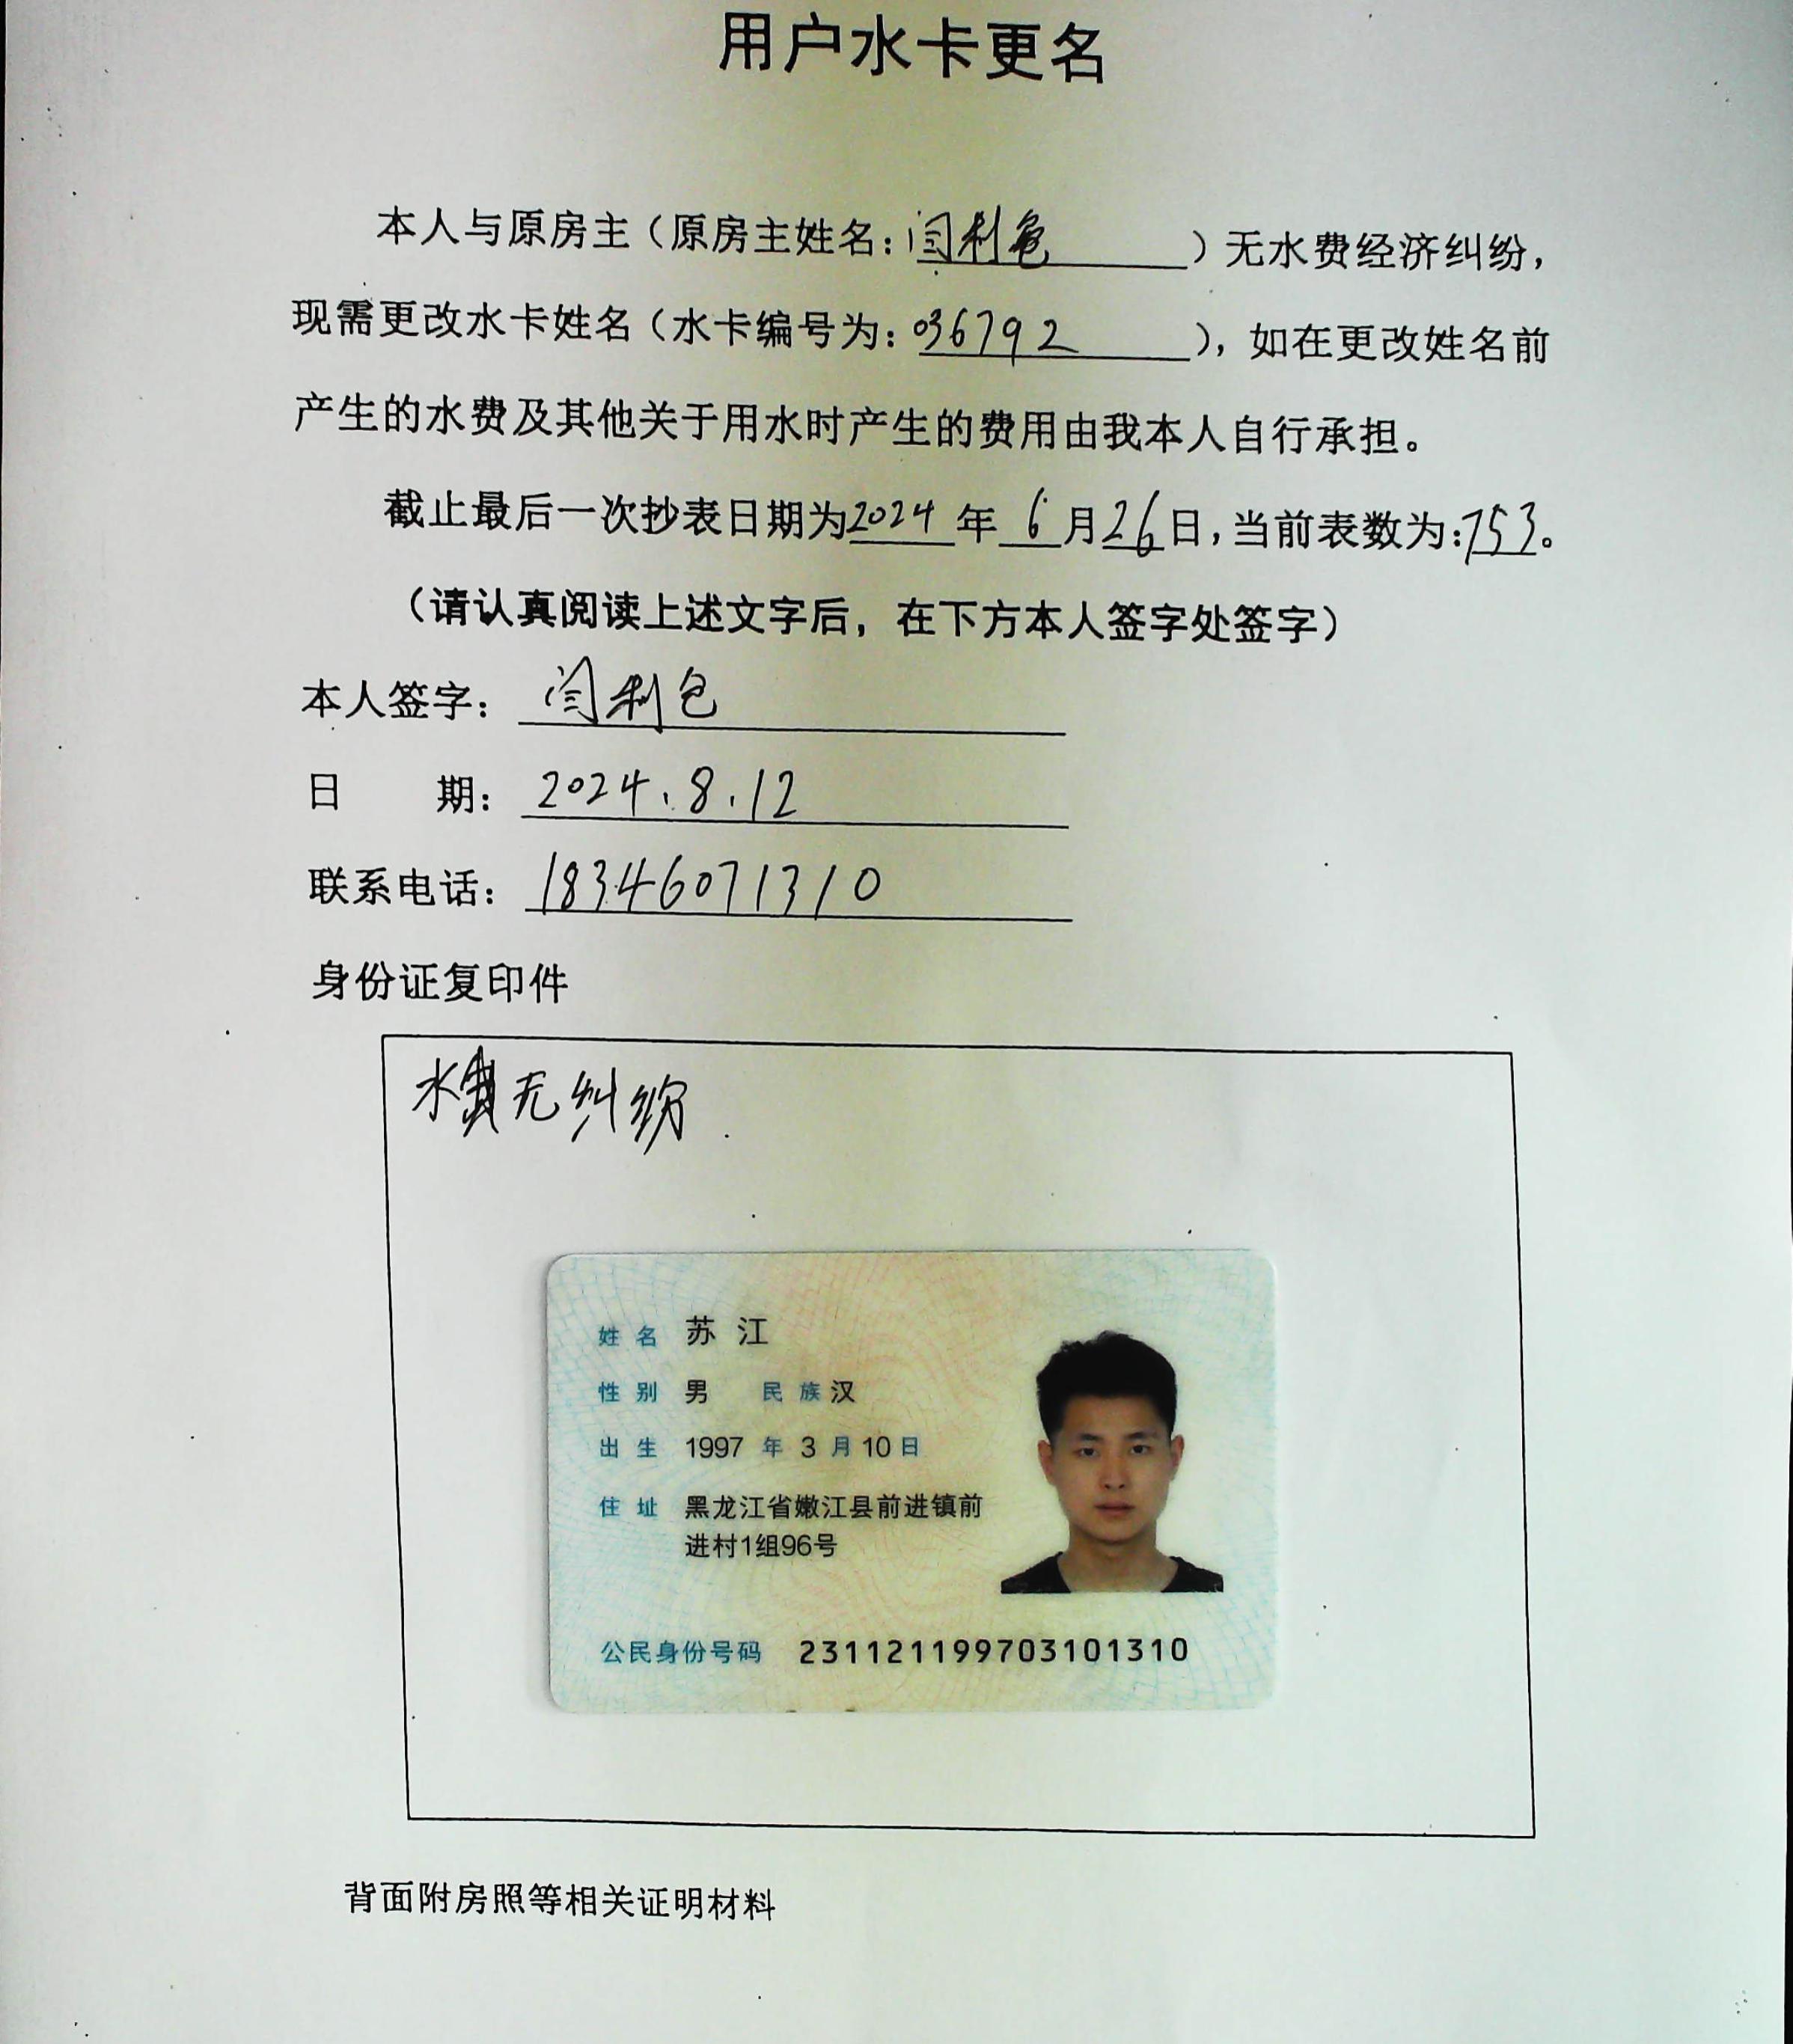 用户水卡更名
本人与原房主（原房主姓名：闫利包）无水费经济纠纷，
现需更改水卡姓名（水卡编号为：036792），如在更改姓名前
产生的水费及其他关于用水时产生的费用由我本人自行承担。
截止最后一次抄表日期为2024年6月26日，当前表数为：753。
（请认真阅读上述文字后，在下方本人签字处签字）
本人签字：闫利包
日 期：2024.8.12
联系电话：18346071310
身份证复印件
水费无纠纷
姓名 苏江
性别 男 民族 汉
出生 1997年3月10日
住址 黑龙江省嫩江县前进镇前
进村1组96号
公民身份号码 231121199703101310
背面附房照等相关证明材料